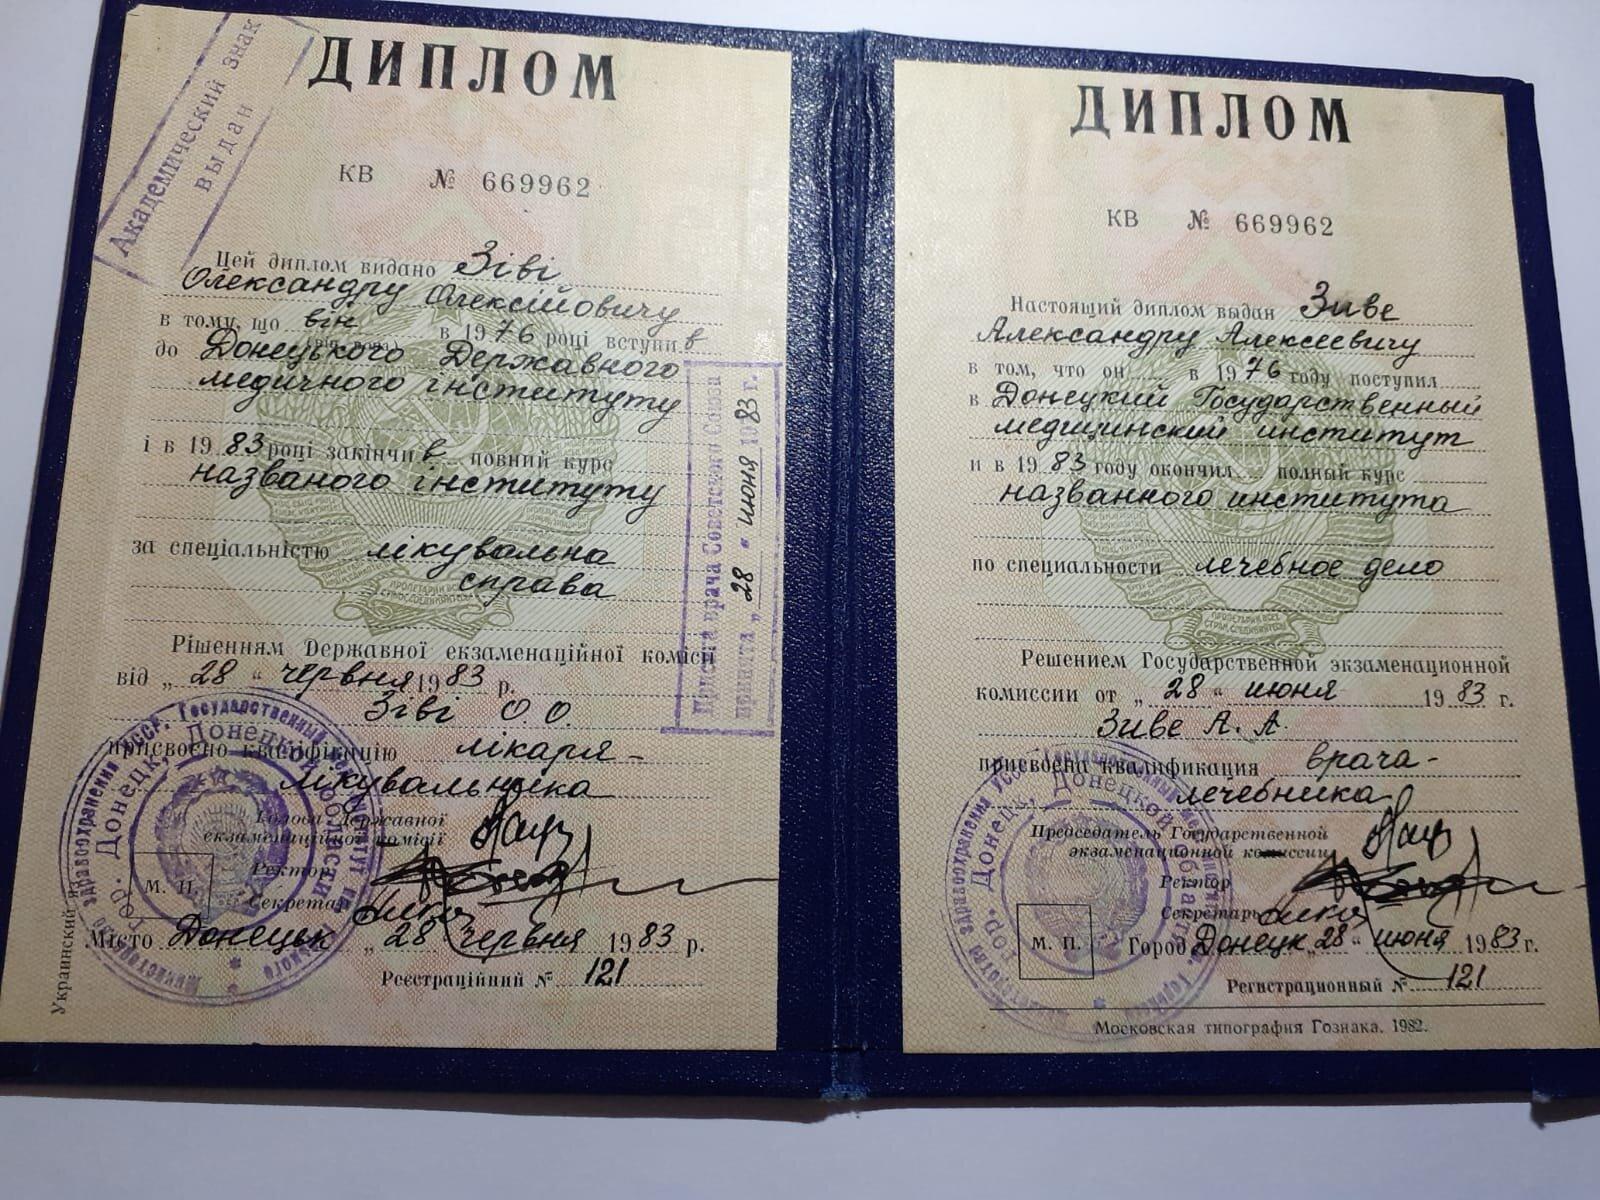 Академический знак
выдан
ДИПЛОМ
КВ № 669962
Цей диплом видано Зіві
Олександру Олексійовичу
в тому, що він в 1976 році вступив
до Донецького Державного
медичного інституту
і в 1983 році закінчив повний курс
названого інституту
за спеціальністю лікувальна
справа
Рішенням Державної екзаменаційної комісії
від „28“ червня 1983 р.
Зіві О.О.
присвоєно кваліфікацію лікаря-
лікувальника
Голова Державної
екзаменаційної комісії
Ректор
Секретар
М. П.
Місто Донецьк „28“ червня 1983 р.
Реєстраційний № 121
Украинский я
Присяга врача Советского Союза
принята „28“ июня 1983 г.
ДИПЛОМ
КВ № 669962
Настоящий диплом выдан Зиве
Александру Алексеевичу
в том, что он в 1976 году поступил
в Донецкий Государственный
медицинский институт
и в 1983 году окончил полный курс
названного института
по специальности лечебное дело
Решением Государственной экзаменационной
комиссии от „28“ июня 1983 г.
Зиве А. А
присвоена квалификация врача-
лечебника
Председатель Государственной
экзаменационной комиссии
Ректор
Секретарь
М. П.
Город Донецк „28“ июня 1983 г.
Регистрационный № 121
Московская типография Гознака. 1982.